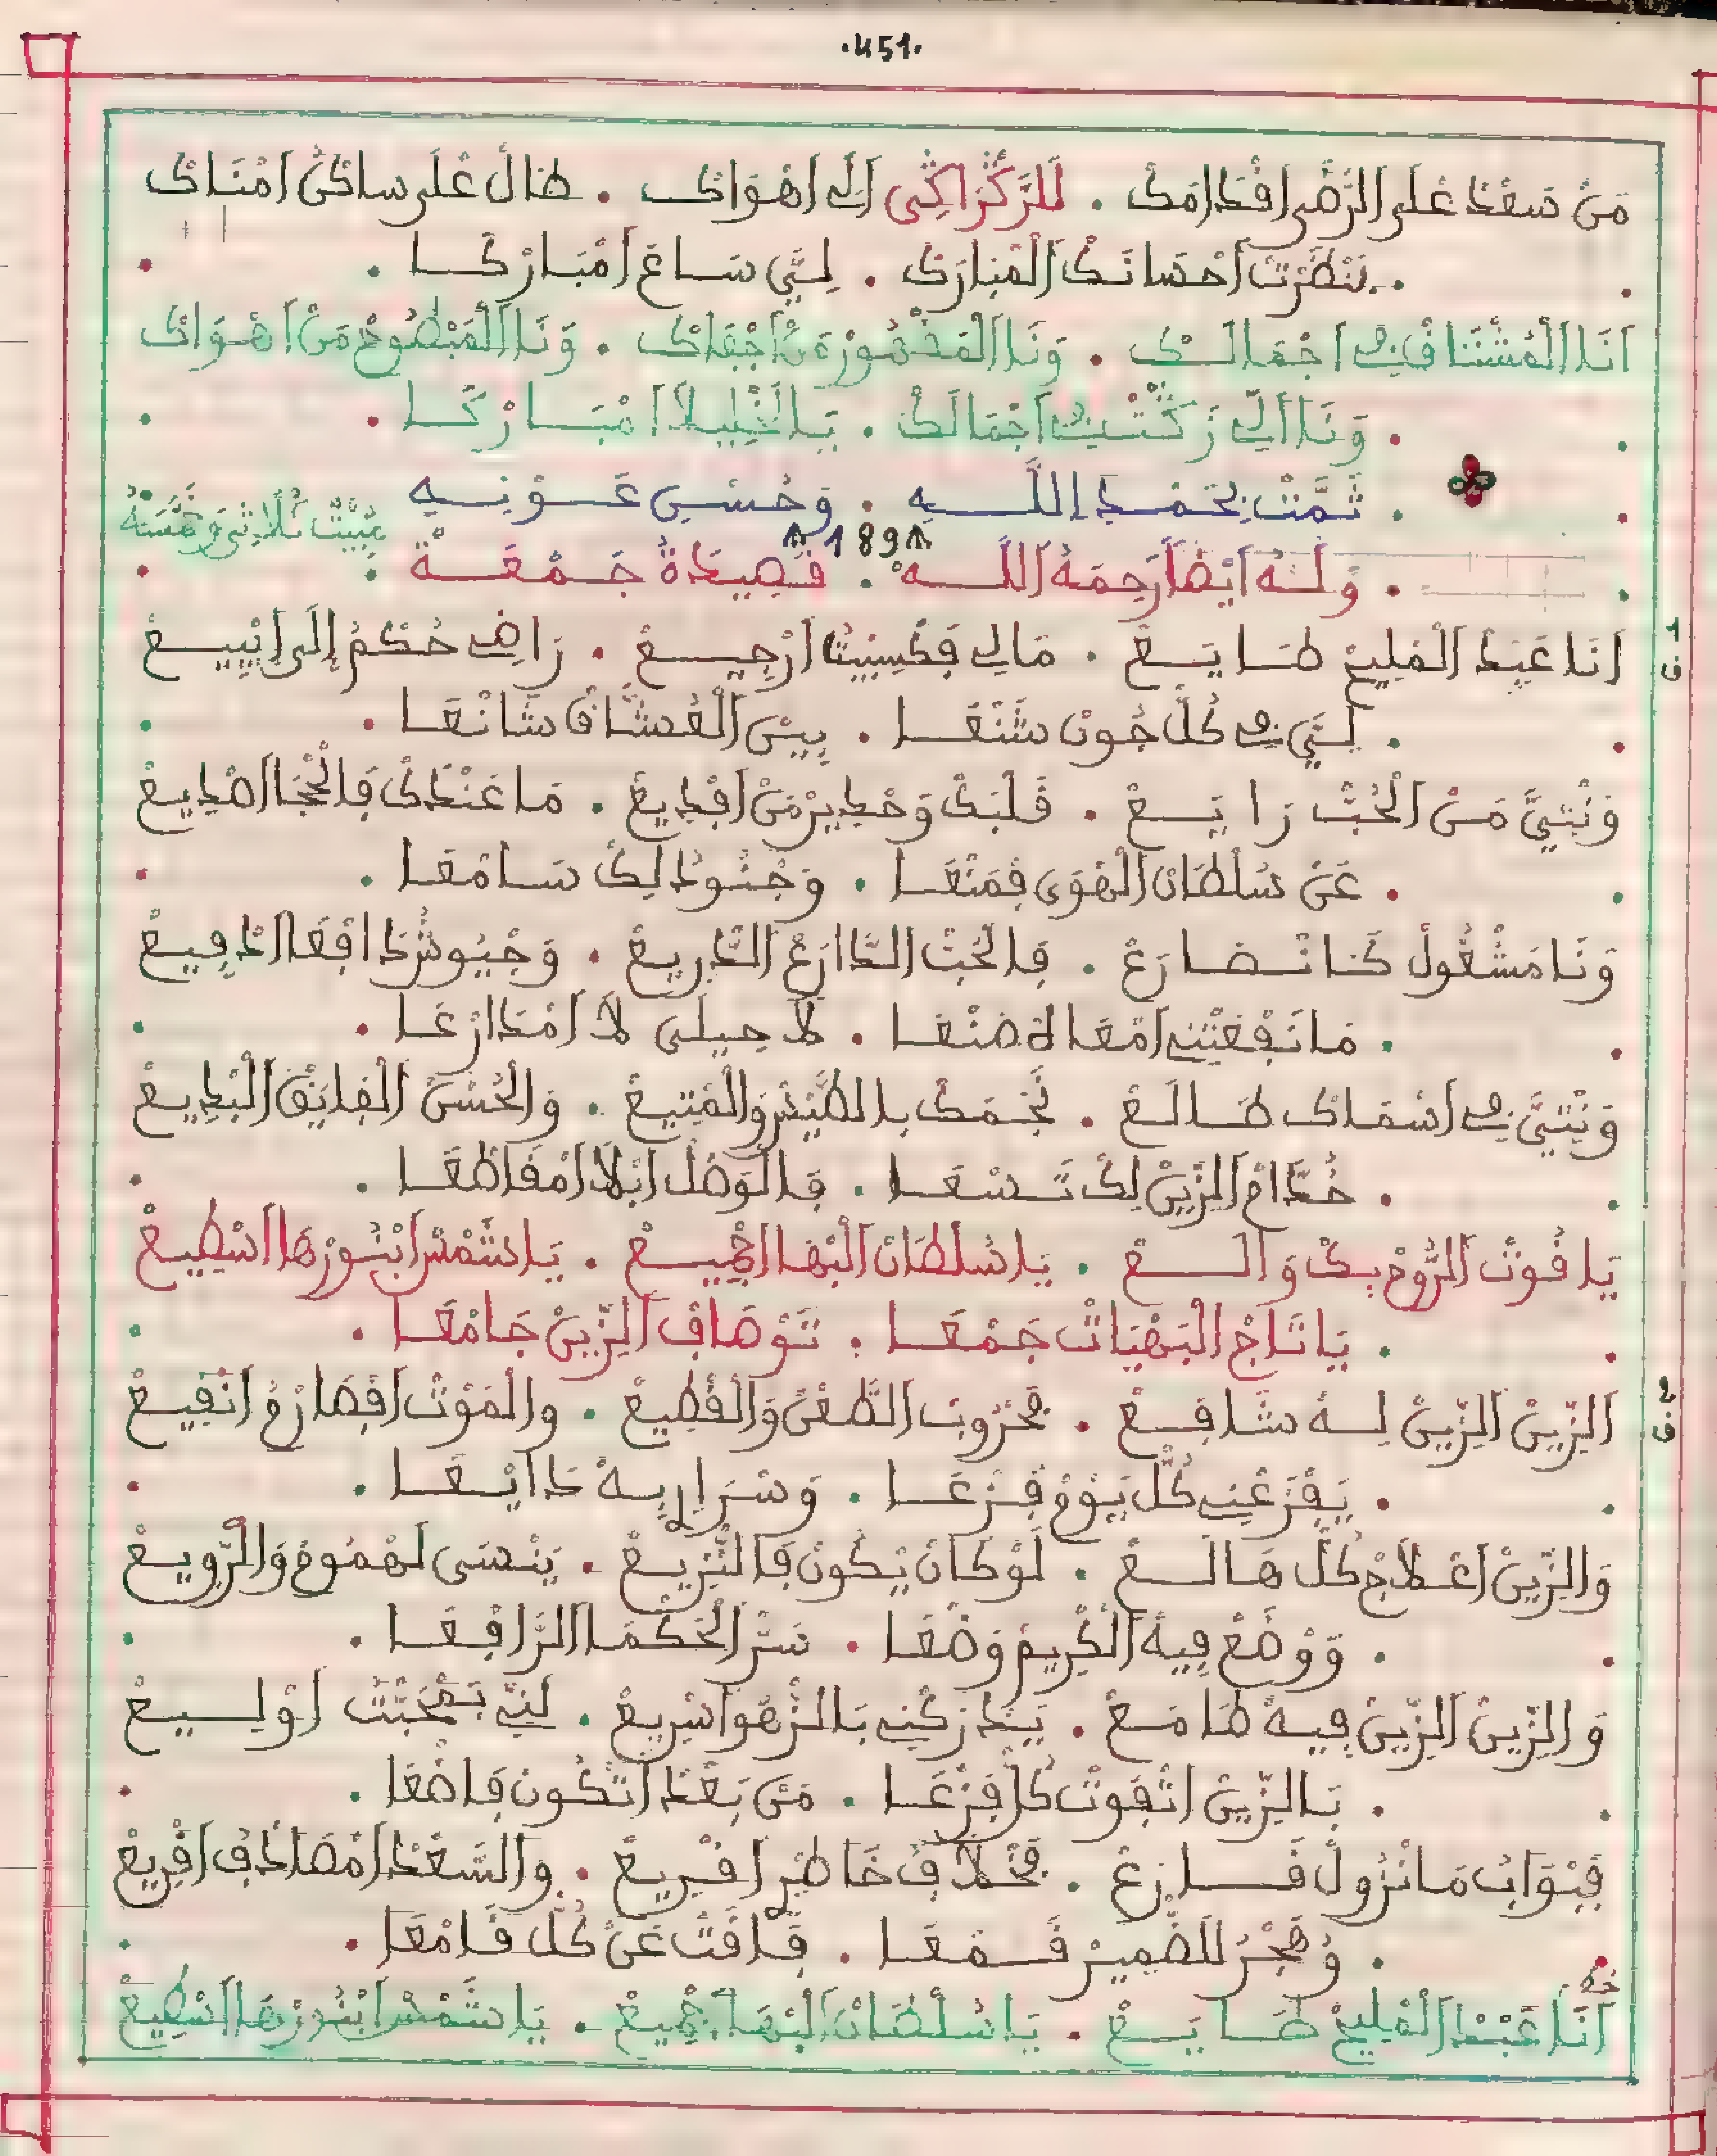 ·451·
مَنْ سَعْدْ عْلَى الرّْضَى اقْدَامَكْ . لَلرَّكْزَاكِي آلِي اهْوَاكْ . طَالْ عْلَى ساكَنْ امْنَاكْ
. نَنْظَرْتْ احْصَانَكْ الْمْبَارَكْ . لِيَّ سَاعَ امْبَارْكَا .
انَا الْمُشْتَاقْ فِي اجْمَالَكْ . وَنَا الْمَقْهُورْ مَنْ اجْفَاكْ . وَنَا الْمَبْضُوعْ مَنْ اهْوَاكْ
. وَنَا الِّي رَكْتْ فِي اجْمَالَكْ . يَالْخْلِيلَا امْبَارْكَا .
. تَمَّتْ بِحَمْدِ اللَّهِ . وَحُسْنِ عَوْنِهِ
. وَلَهُ أيْضًا رَحِمَهُ اللَّه . قَصِيدَةُ جَمْعَة .
189
مبيت ثلاثي وخمسة
ق 1
انَا عَبْدْ الْمْلِيحْ طَايَعْ . مَالِي فَكْسِيبْتُ ارْجِيعْ . رَاضِي حُكْمُ إلَى ايْبِيعْ
. لِيَّ فِي كُلّْ جُونْ شَنْعَا . بِينْ الْعُشَّاقْ شَانْعَا .
وَنْتِيَّ مَنْ الْحُبّْ زَايَعْ . قَلْبَكْ وَحْدِيرْ مَنْ افْدِيعْ . مَا عَنْدَكْ فَالْحْجَا اصْدِيعْ
. عَنْ سُلْطَانْ الْهْوَى فمَنْعَا . وَجْنُودْ لِكْ سَامْعَا .
وَنَا مَشْغُولْ كَانْضَارَعْ . فَالْحُبّْ الدَّارَعْ الدّْرِيعْ . وَجْيُوشْ دَافْعَا الدْفِيعْ
. مَا نَفْعَتْنِي امْعَاهْ صَنْعَا . لَا حِيلَى لَا امْدَارْعَا .
وَنْتِيَّ فِي اسْمَاكْ طَالَعْ . نَجْمَكْ بالطَّيْشْ وَالْمْتِيعْ . وَالْحُسْنْ الْفَايَقْ الْبْدِيعْ
. خُدَّامْ الزِّينْ لِكْ تَسْعَا . فَالْوَصْلْ ابْلَا امْقَاطْعَا .
يَا قُوتْ الرُّوحْ بِكْ وَالَعْ . يَا سُلْطَانْ الْبْهَا اجْمِيعْ . يَا شَمْسْ ابْنُورْهَا اسْطِيعْ
. يَا تَاجْ الْبَهْيَاتْ جَمْعَا . تَوْصَافْ الزِّينْ جَامْعَا .
ق 2
الزِّينْ الزِّينْ لِهْ شَافَعْ . بَحْرُوبْ الطَّعْنْ وَالْقْطِيعْ . والْمَوْتْ اقْصَارْحُ انْقِيعْ
. يَفْزَعْنِي كُلّْ يَوْمْ فَزْعَا . وَسْرَارِيهْ دَايْعَا .
وَالزِّينْ اعْلَاجْ كُلّْ هَالَعْ . لَوْ كَانْ يْكُونْ فَالنّْزِيعْ . يَنْسَى لَهْمُومْ وَالرّْوِيعْ
. وَوْضَعْ فِيهْ الْكْرِيمْ وَضْعَا . سَرّْ الْحَكْمَا الرَّافْعَا .
وَالزِّينْ الزِّينْ فِيهْ طَامَعْ . يَدَّرَكْنِي بَالزّْهُو اسْرِيعْ . لَنِّي بَمْحَبّْتُ اوْلِيعْ
. بَالزِّينْ اتْفُوتْ كُلّْ فَزْعَا . مَنْ بَعْدْ اتْكُونْ فَاضْعَا .
فَبْوَابُ مَانْزُولْ قَارَعْ . بَخْلَافْ خَاطْرِي اقْرِيعْ . وَالسَّعْدْ امْصَادَفْ افْرِيعْ
. وُهْجَرْ لَلضّْمِيرْ قَمْعَا . فَاقَتْ عَنْ كُلّْ قَامْعَا .
انَا عَبْدْ الْمْلِيحْ طَايَعْ . يَا سُلْطَانْ الْبْهَا اجْمِيعْ . يَا شَمْسْ ابْنُورْهَا اسْطِيعْ